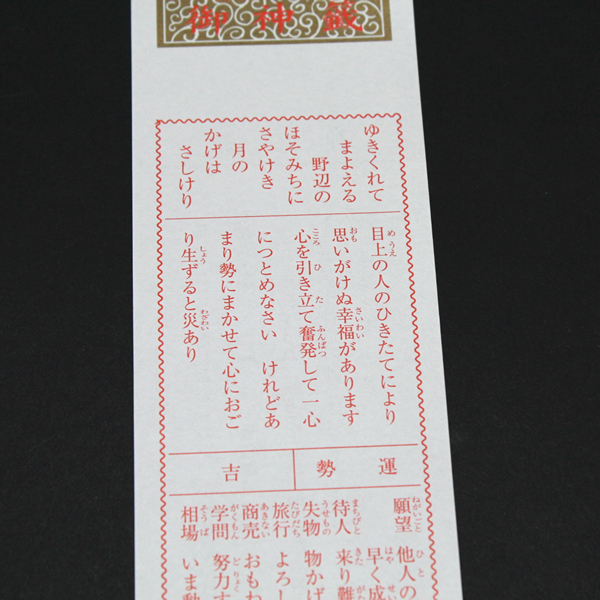 御神籤
ゆきくれて
まよえる
野辺の
ほそみちに
さやけき
月の
かげは
さしけり
目上の人のひきたてにより
思いがけぬ幸福があります
心を引き立て奮発して一心
につとめなさい けれどあ
まり勢にまかせて心におご
り生ずると災あり
運勢 吉
願望 他人の
早く成
待人 来り難
失物 物かげ
旅行 よろし
商売 おもわ
学問 努力す
相場 いま動